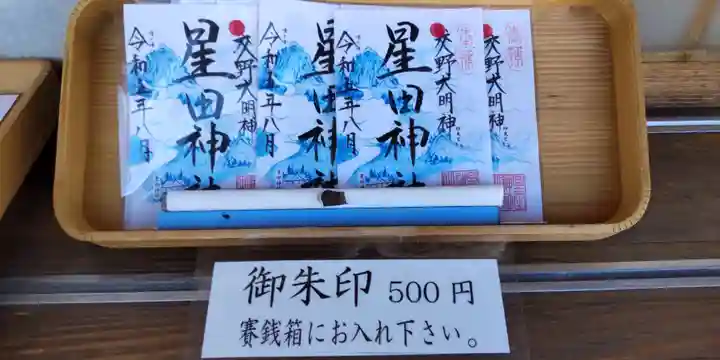 交野大明神
星田神社
令和五年八月
星
令和五年八月
交野大明神
星田神社
令和五年八月
交野大明神
御朱印 500円
賽銭箱にお入れ下さい。